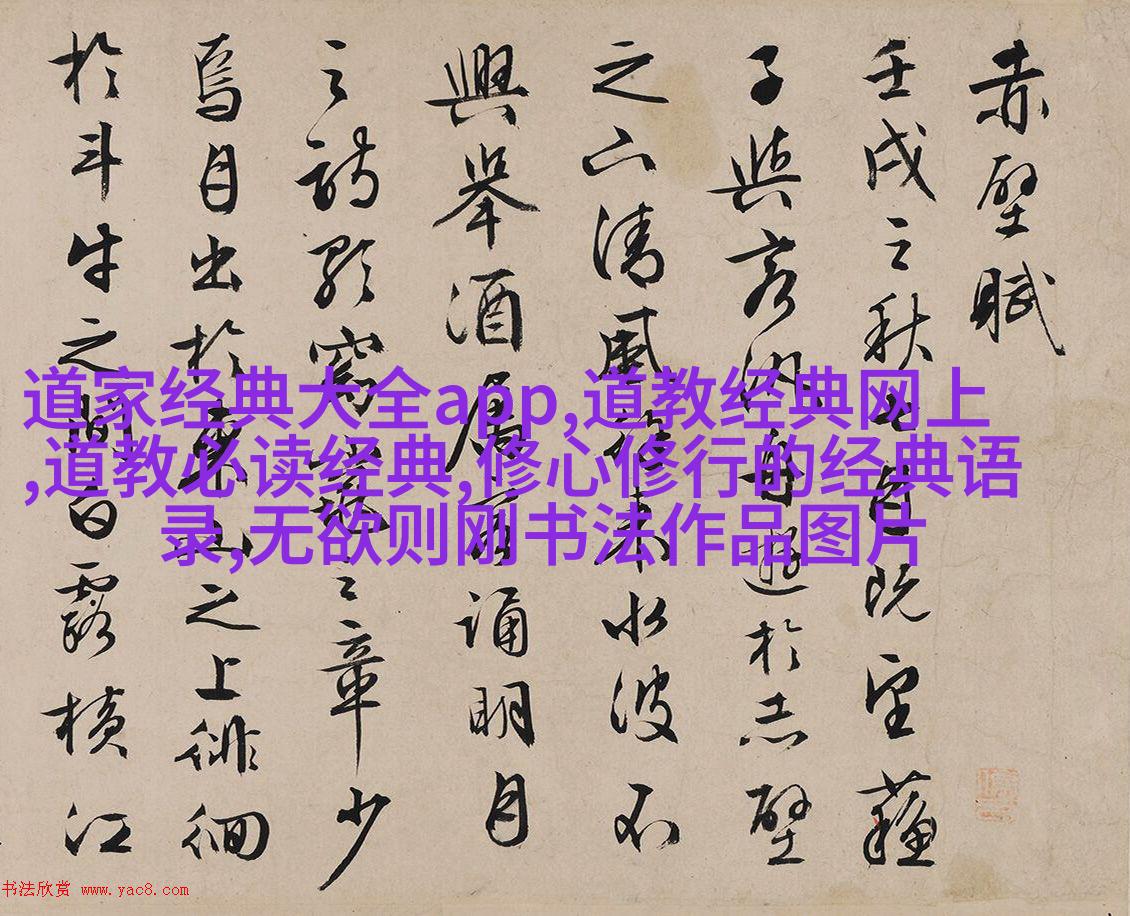 赤壁賦
壬戌之秋七月既望蘇
子與客汎舟遊於赤壁
之下清風徐來水波不
興舉酒屬客誦明月
之詩歌窈窕之章少
焉月出於東山之上徘徊
於斗牛之間白露橫江
道家经典大全app,道教经典网上
,道教必读经典,修心修行的经典语
录,无欲则刚书法作品图片
书法欣赏 www.yac8.com